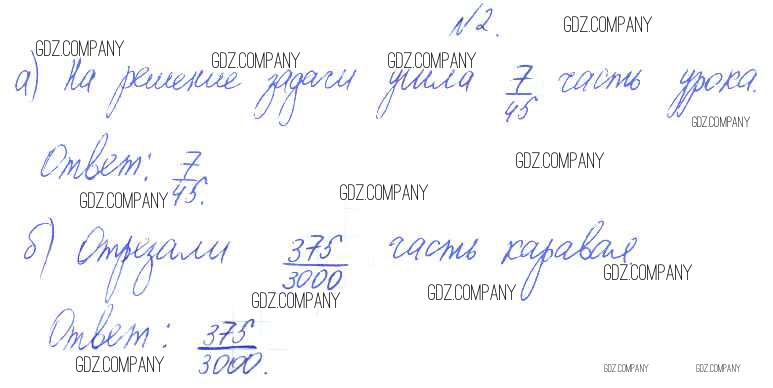 №2.
GDZ.COMPANY
GDZ.COMPANY GDZ.COMPANY GDZ.COMPANY
а) На решение задачи ушла 7/45 часть урока.
GDZ.COMPANY
Ответ: 7/45.
GDZ.COMPANY
GDZ.COMPANY GDZ.COMPANY
б) Отрезали 375/3000 часть каравая.
GDZ.COMPANY
GDZ.COMPANY GDZ.COMPANY
Ответ: 375/3000.
GDZ.COMPANY GDZ.COMPANY GDZ.COMPANY